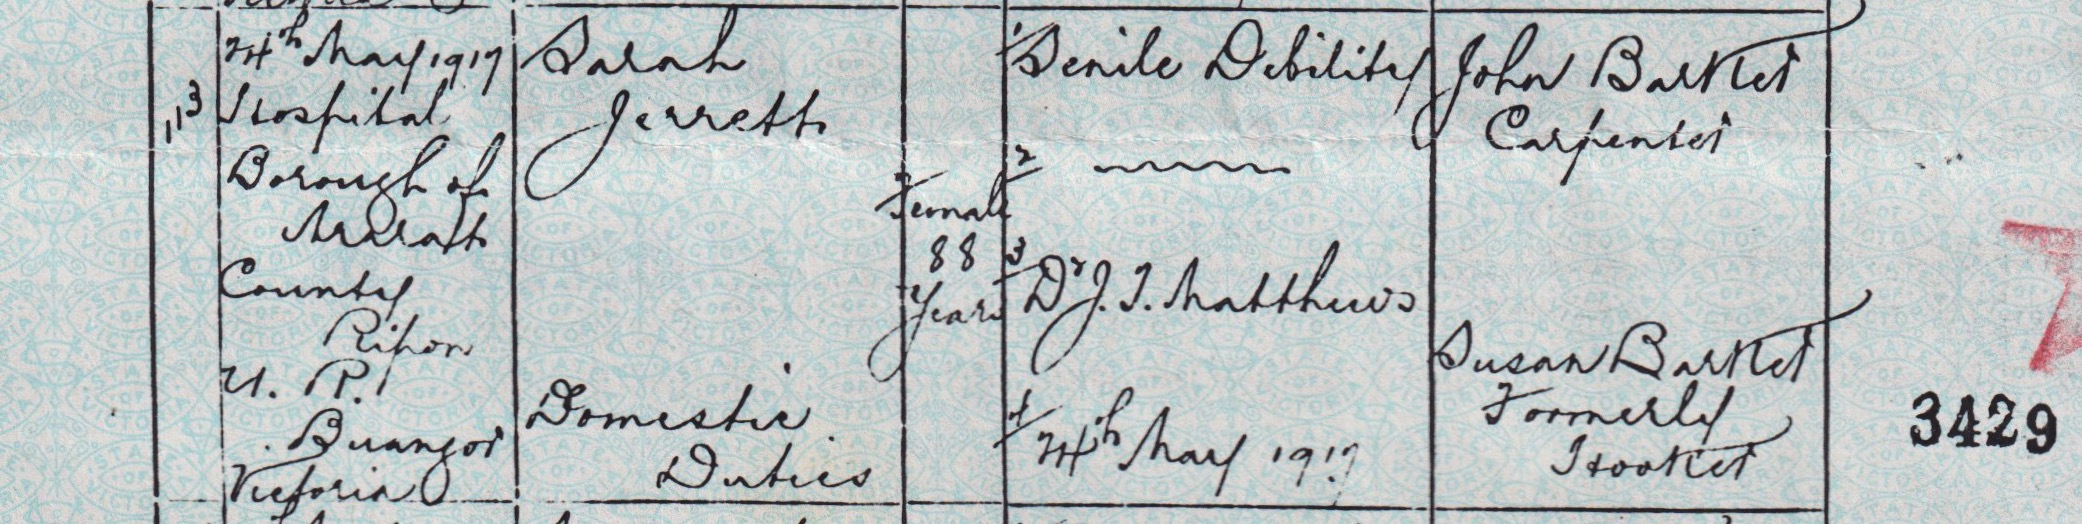 113
24th May 1917
Hospital
Borough of
Ararat
County
Ripon
U. R.
Buangor
Victoria
Sarah
Jerrett
Domestic
Duties
Female
88
Years
1/ Senile Debility
2/
3/ Dr J. T. Matthews
4/ 24th May 1917
John Barker
Carpenter
Susan Barker
Formerly
Hooker
3429